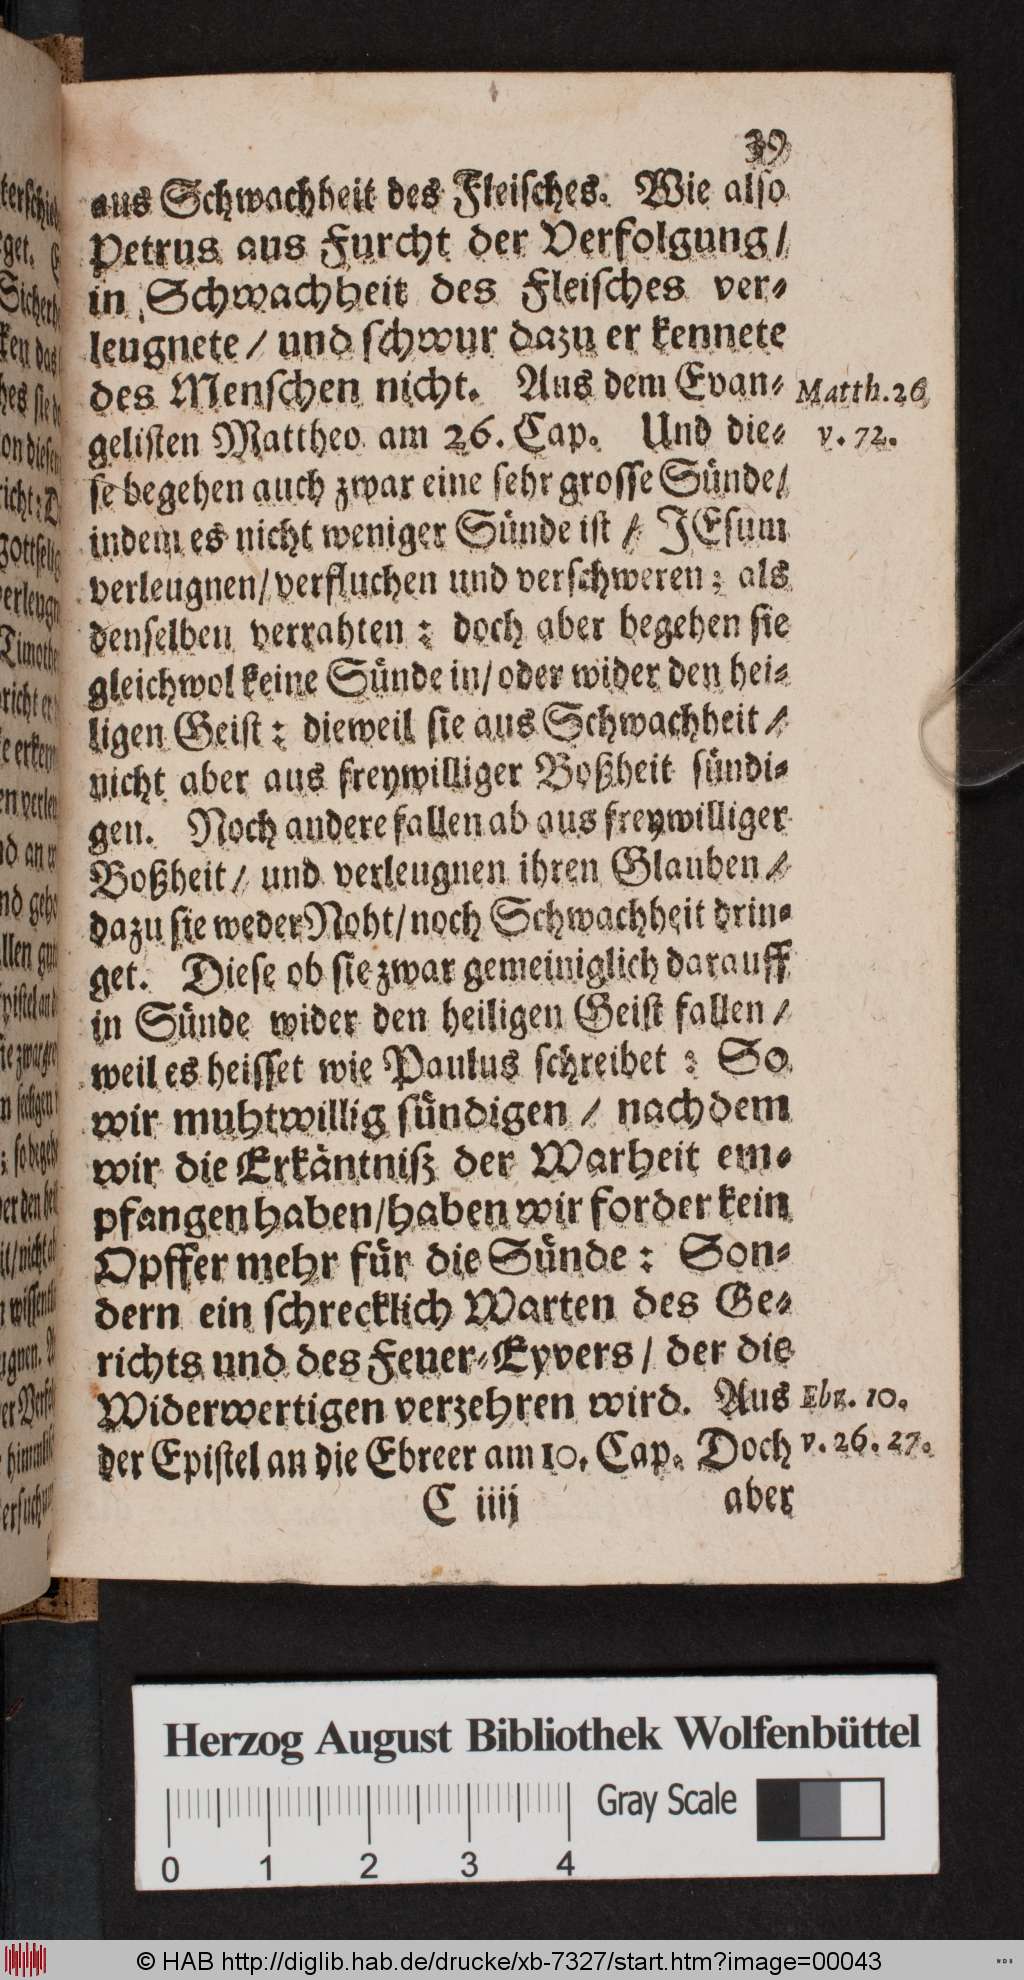 39
aus Schwachheit des Fleisches. Wie also
Petrus aus Furcht der Verfolgung/
in Schwachheit des Fleisches ver-
leugnete / und schwur dazu er kennete
des Menschen nicht. Aus dem Evan-
Matth. 26
gelisten Mattheo am 26. Cap. Und die-
v. 72.
se begehen auch zwar eine sehr grosse Sünde/
indem es nicht weniger Sünde ist / JEsum
verleugnen/ verfluchen und verschweren; als
denselben verrahten: doch aber begehen sie
gleichwol keine Sünde in/ oder wider den hei-
ligen Geist: dieweil sie aus Schwachheit /
nicht aber aus freywilliger Boßheit sündi-
gen. Noch andere fallen ab aus freywilliger
Boßheit / und verleugnen ihren Glauben /
dazu sie weder Noht/ noch Schwachheit drin-
get. Diese ob sie zwar gemeiniglich darauff
in Sünde wider den heiligen Geist fallen /
weil es heisset wie Paulus schreibet: So
wir muhtwillig sündigen / nachdem
wir die Erkäntniß der Warheit em-
pfangen haben/haben wir forder kein
Opffer mehr für die Sünde: Son-
dern ein schrecklich Warten des Ge-
richts und des Feuer-Eyvers / der die
Widerwertigen verzehren wird. Aus
Ebr. 10.
der Epistel an die Ebreer am 10. Cap. Doch
v. 26. 27.
C iiij
aber
Herzog August Bibliothek Wolfenbüttel
Gray Scale
0 1 2 3 4
© HAB http://diglib.hab.de/drucke/xb-7327/start.htm?image=00043